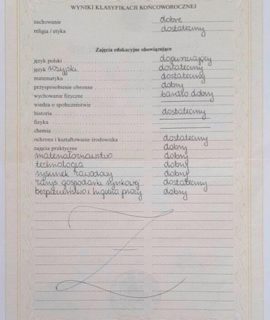 WYNIKI KLASYFIKACJI KOŃCOWOROCZNEJ
zachowanie dobre
religia / etyka dostateczny
Zajęcia edukacyjne obowiązujące
język polski dopuszczający
język rosyjski dostateczny
matematyka dostateczny
przysposobienie obronne dobry
wychowanie fizyczne bardzo dobry
wiedza o społeczeństwie
historia dostateczny
fizyka
chemia
ochrona i kształtowanie środowiska dostateczny
zajęcia praktyczne dobry
materiałoznawstwo dobry
technologia dobry
rysunek zawodowy dobry
zarys gospodarki rynkowej dostateczny
bezpieczeństwo i higiena pracy dobry